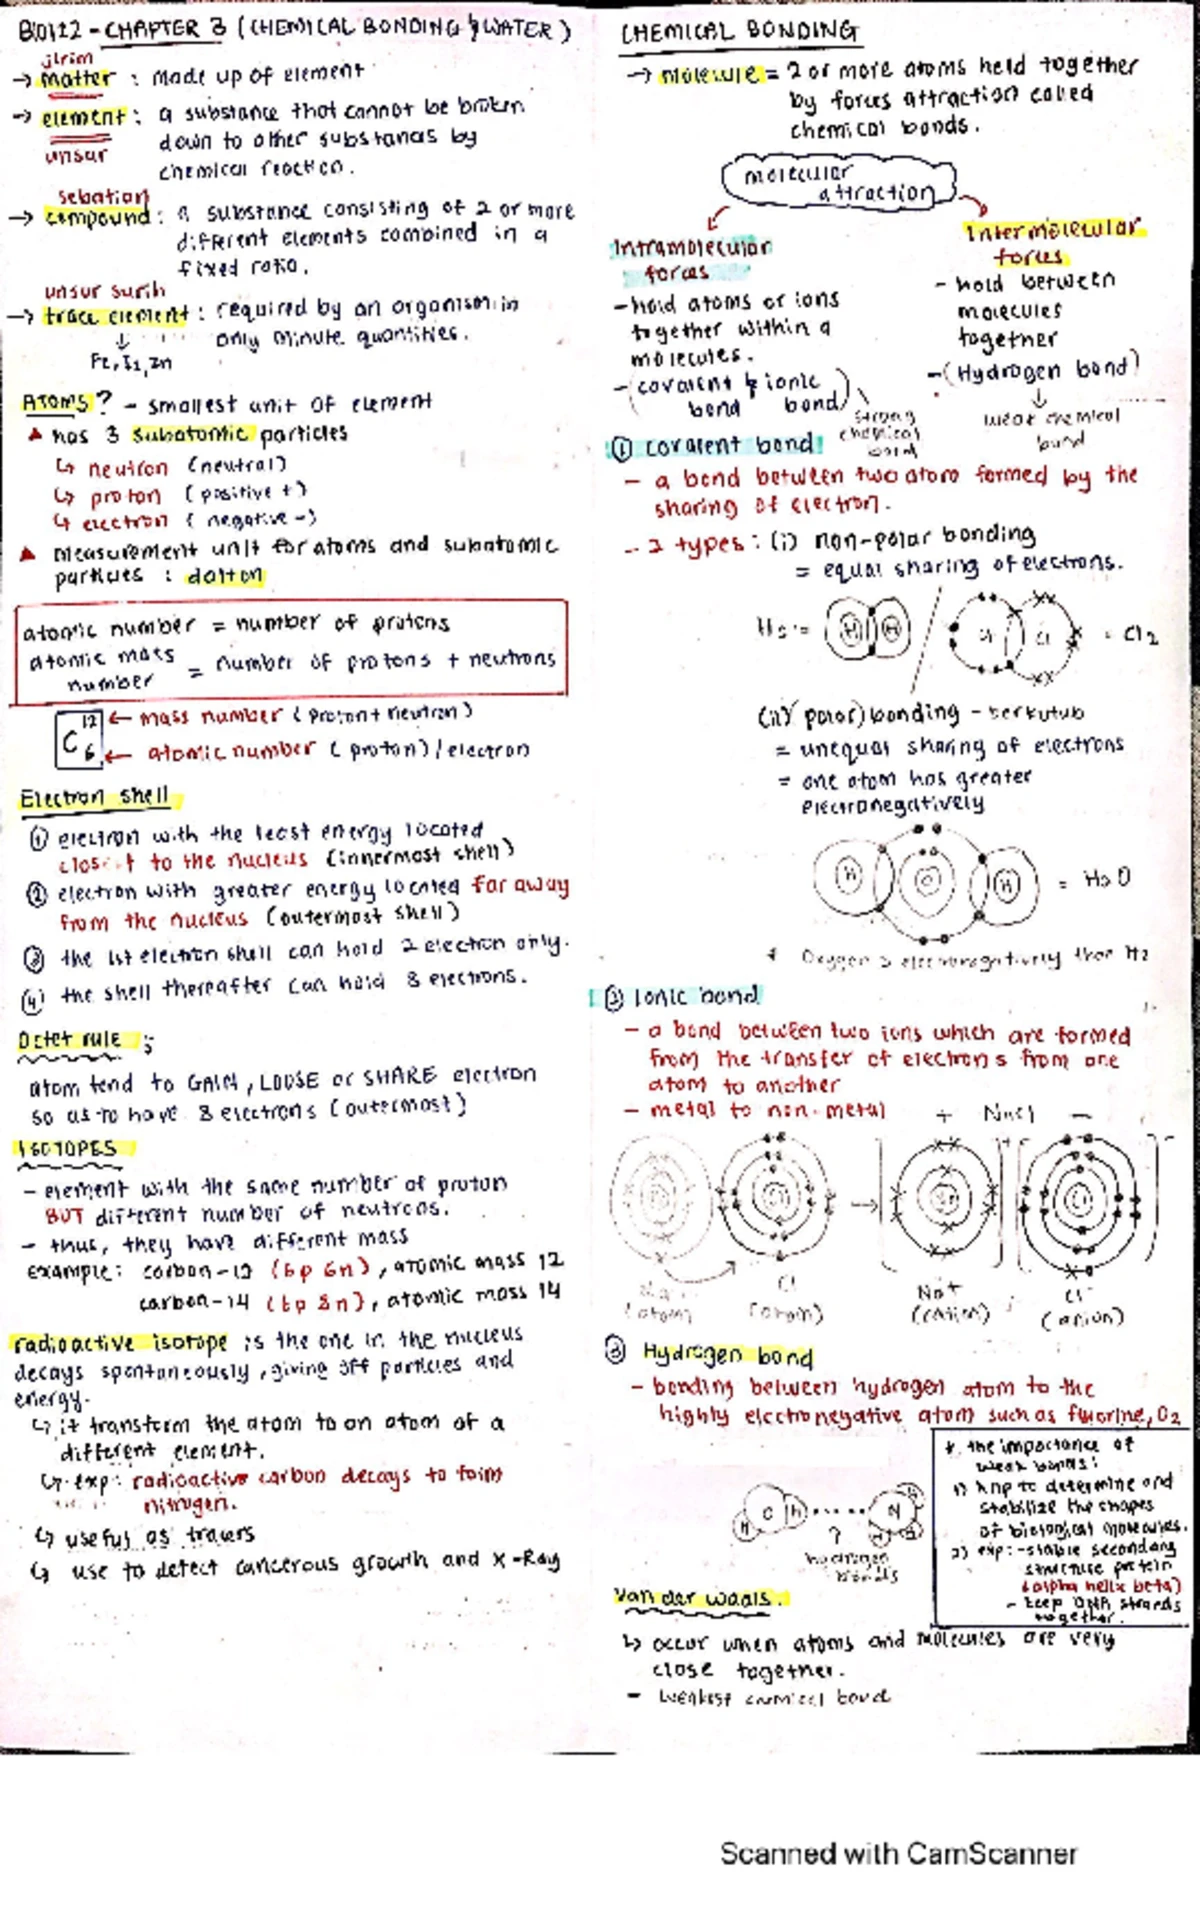 BIO122 - CHAPTER 3 (CHEMICAL BONDING & WATER)
jirim
→ matter : made up of element
→ element : a substance that cannot be broken
unsur
down to other substances by
chemical reaction.
sebatian
→ compound : a substance consisting of 2 or more
different elements combined in a
fixed ratio.
unsur surih
→ trace element : required by an organism in
only minute quantities.
↓
Atoms? - smallest unit of element
▲ has 3 subatomic particles
↳ neutron (neutral)
↳ proton (positive +)
↳ electron (negative -)
▲ measurement unit for atoms and subatomic
particles : dalton
atomic number = number of protons
atomic mass number = number of protons + neutrons
12 ← mass number (proton + neutron)
C
6 ← atomic number (proton) / electron
Electron shell
① electron with the least energy located
closest to the nucleus (innermost shell)
② electron with greater energy located far away
from the nucleus (outermost shell)
③ the 1st electron shell can hold 2 electron only.
④ the shell thereafter can hold 8 electrons.
Octet rule ;
atom tend to GAIN, LOOSE or SHARE electron
so as to have 8 electrons (outermost)
ISOTOPES
- element with the same number of proton
BUT different number of neutrons.
- thus, they have different mass
example : carbon-12 (6p 6n), atomic mass 12
carbon-14 (6p 8n), atomic mass 14
radioactive isotope is the one in the nucleus
decays spontaneously, giving off particles and
energy.
↳ it transform the atom to an atom of a
different element.
↳ exp : radioactive carbon decays to form
nitrogen.
↳ useful as tracers
↳ use to detect cancerous growth and x-Ray
CHEMICAL BONDING
→ molecule = 2 or more atoms held together
by forces attraction called
chemical bonds.
molecular
attraction
Intramolecular
forces
- hold atoms or ions
together within a
molecules.
- (covalent & ionic
bond bond)
strong
chemical
bond
Intermolecular
forces
- hold between
molecules
together
- (Hydrogen bond)
↓
weak chemical
bond
① covalent bond
- a bond between two atom formed by the
sharing of electron.
- 2 types : (i) non-polar bonding
= equal sharing of electrons.
H2 = H H / Cl Cl = Cl2
(ii) polar) bonding - berkutub
= unequal sharing of electrons
= one atom has greater
electronegatively
H O H = H2O
* Oxygen > electronegatively than H2
② Ionic bond
- a bond between two ions which are formed
from the transfer of electrons from one
atom to another
- metal to non-metal + NaCl -
(atom)
Cl
(atom)
Na+
(cation)
Cl-
(anion)
③ Hydrogen bond
- bonding between hydrogen atom to the
highly electronegative atom such as fluorine, O2
H O H ...... N H H H
?
hydrogen
bonds
* the importance of
weak bonds :
1) help to determine and
stabilize the shapes
of biological molecules.
2) exp : - stable secondary
structure protein
(alpha helix beta)
- keep DNA strands
together.
Van der waals.
↳ occur when atoms and molecules are very
close together.
- weakest chemical bond
Scanned with CamScanner